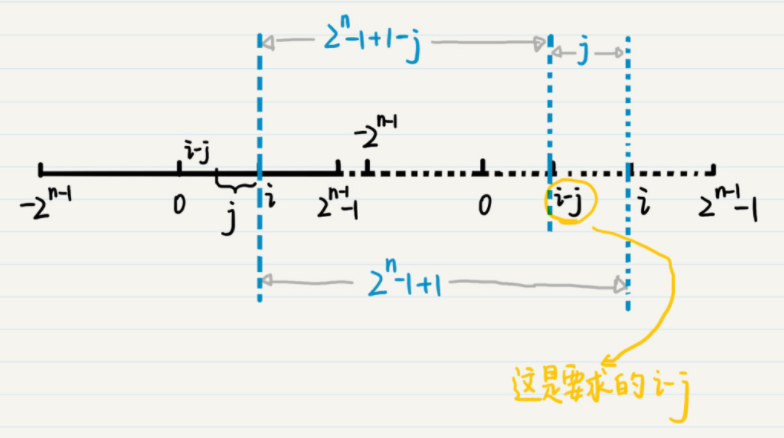 2ⁿ-1+1-j
j
-2ⁿ⁻¹
i-j
-2ⁿ⁻¹ 0 j i 2ⁿ⁻¹-1 0 i-j i 2ⁿ⁻¹-1
2ⁿ-1+1
这是要求的i-j